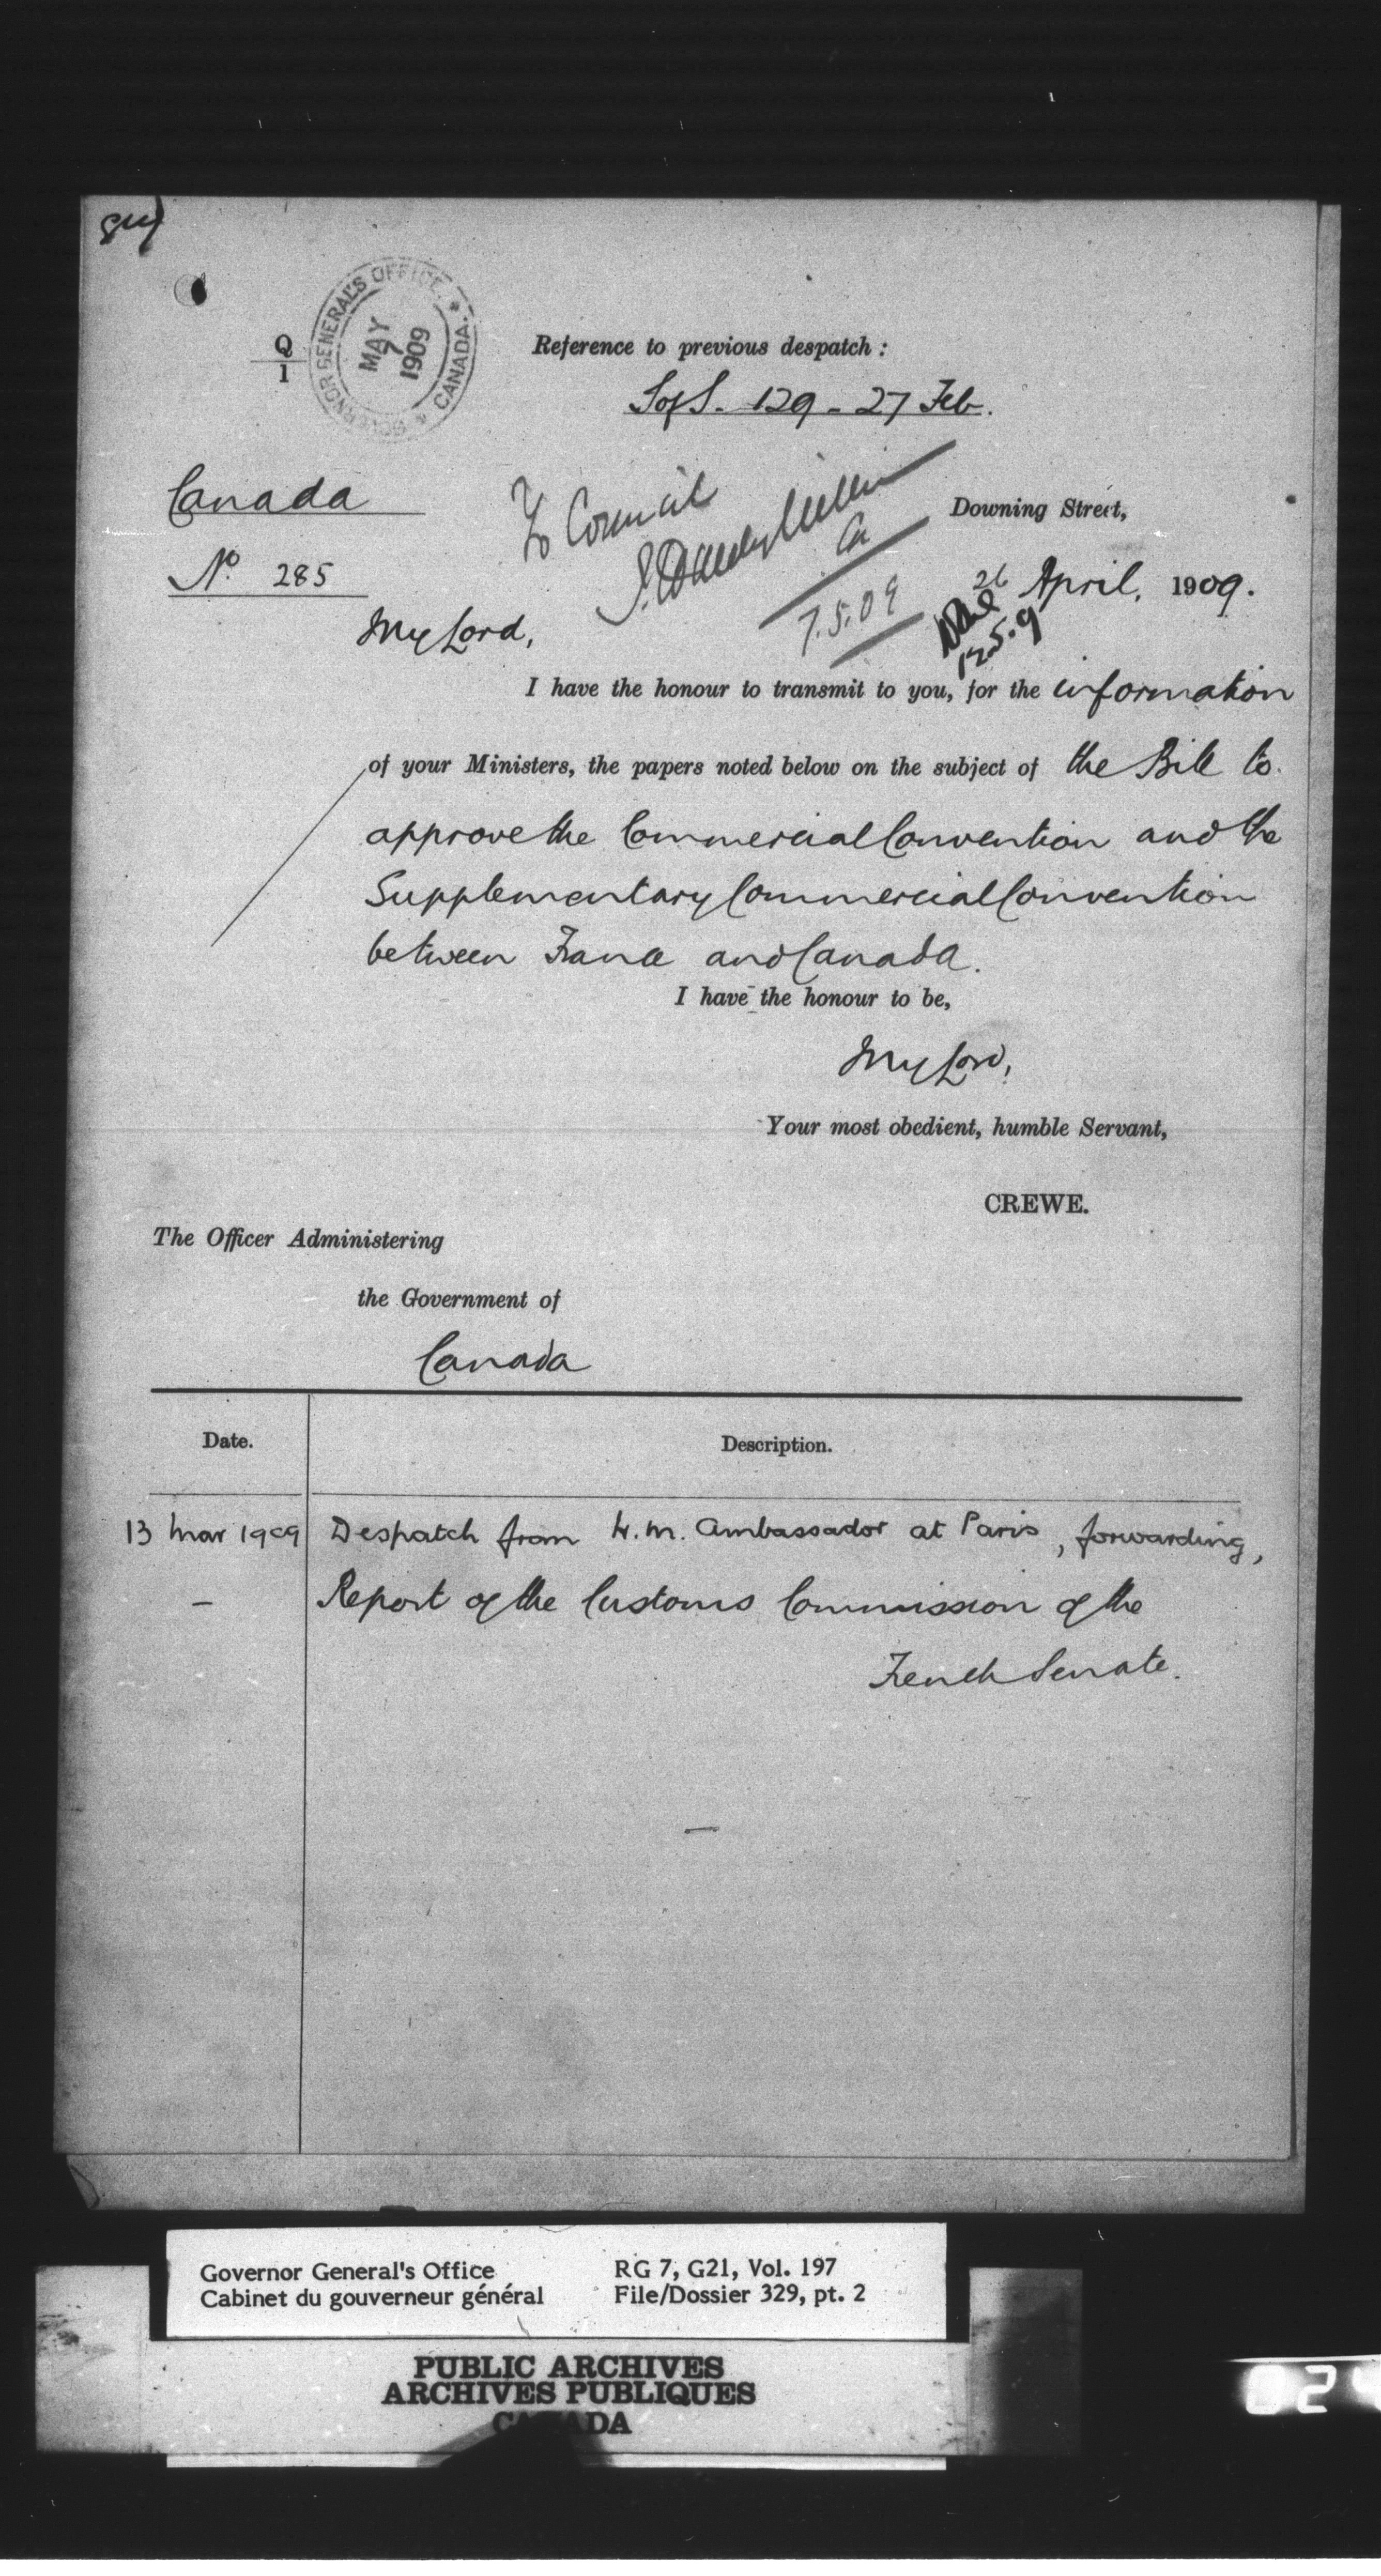 Q
1
GOVERNOR GENERAL'S OFFICE. * CANADA. *
MAY
7
1909
Reference to previous despatch :
S of S. 129 - 27 Feb.
Canada
No. 285
To Council
7.5.09
Downing Street,
26 April, 1909.
12.5.9
My Lord,
I have the honour to transmit to you, for the information
of your Ministers, the papers noted below on the subject of the Bill to
approve the Commercial Convention and the
Supplementary Commercial Convention
between France and Canada.
I have the honour to be,
My Lord,
Your most obedient, humble Servant,
CREWE.
The Officer Administering
the Government of
Canada
Date. Description.
13 Mar 1909 Despatch from H.M. Ambassador at Paris, forwarding,
– Report of the Customs Commission of the
French Senate.
Governor General's Office RG 7, G21, Vol. 197
Cabinet du gouverneur général File/Dossier 329, pt. 2
PUBLIC ARCHIVES
ARCHIVES PUBLIQUES
CANADA